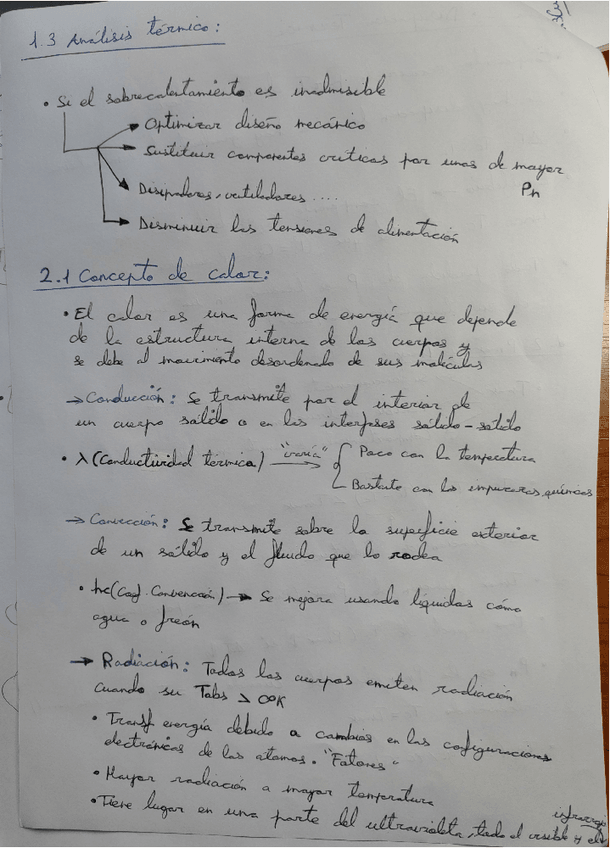 1.3 Análisis térmico:
• Si el sobrecalentamiento es inadmisible
→ Optimizar diseño mecánico
→ Sustituir componentes críticos por unos de mayor
Pn
→ Disipadores, ventiladores ....
→ Disminuir las tensiones de alimentación
2.1 Concepto de calor:
• El calor es una forma de energía que depende
de la estructura interna de los cuerpos y
se debe al movimiento desordenado de sus moléculas
→ Conducción: Se transmite por el interior de
un cuerpo sólido o en las interfases sólido-sólido
• λ (Conductividad térmica) "varía" Poco con la temperatura
Bastante con las impurezas químicas
→ Convección: Se transmite sobre la superficie exterior
de un sólido y el fluido que lo rodea
• hc (Coef. Convención) → Se mejora usando líquidos cómo
agua o freón
→ Radiación: Todos los cuerpos emiten radiación
cuando su Tabs > 0ºK
• Transf energía debido a cambios en las configuraciones
electrónicas de los átomos. "Fotones"
• Mayor radiación a mayor temperatura
• Tiene lugar en una parte del ultravioleta, todo el visible y el